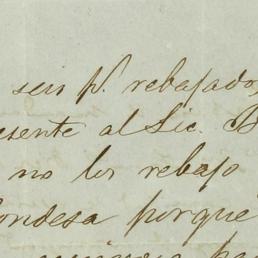 seis p.s rebajado,
esente al Lic. B
no los rebajo
ondesa porque